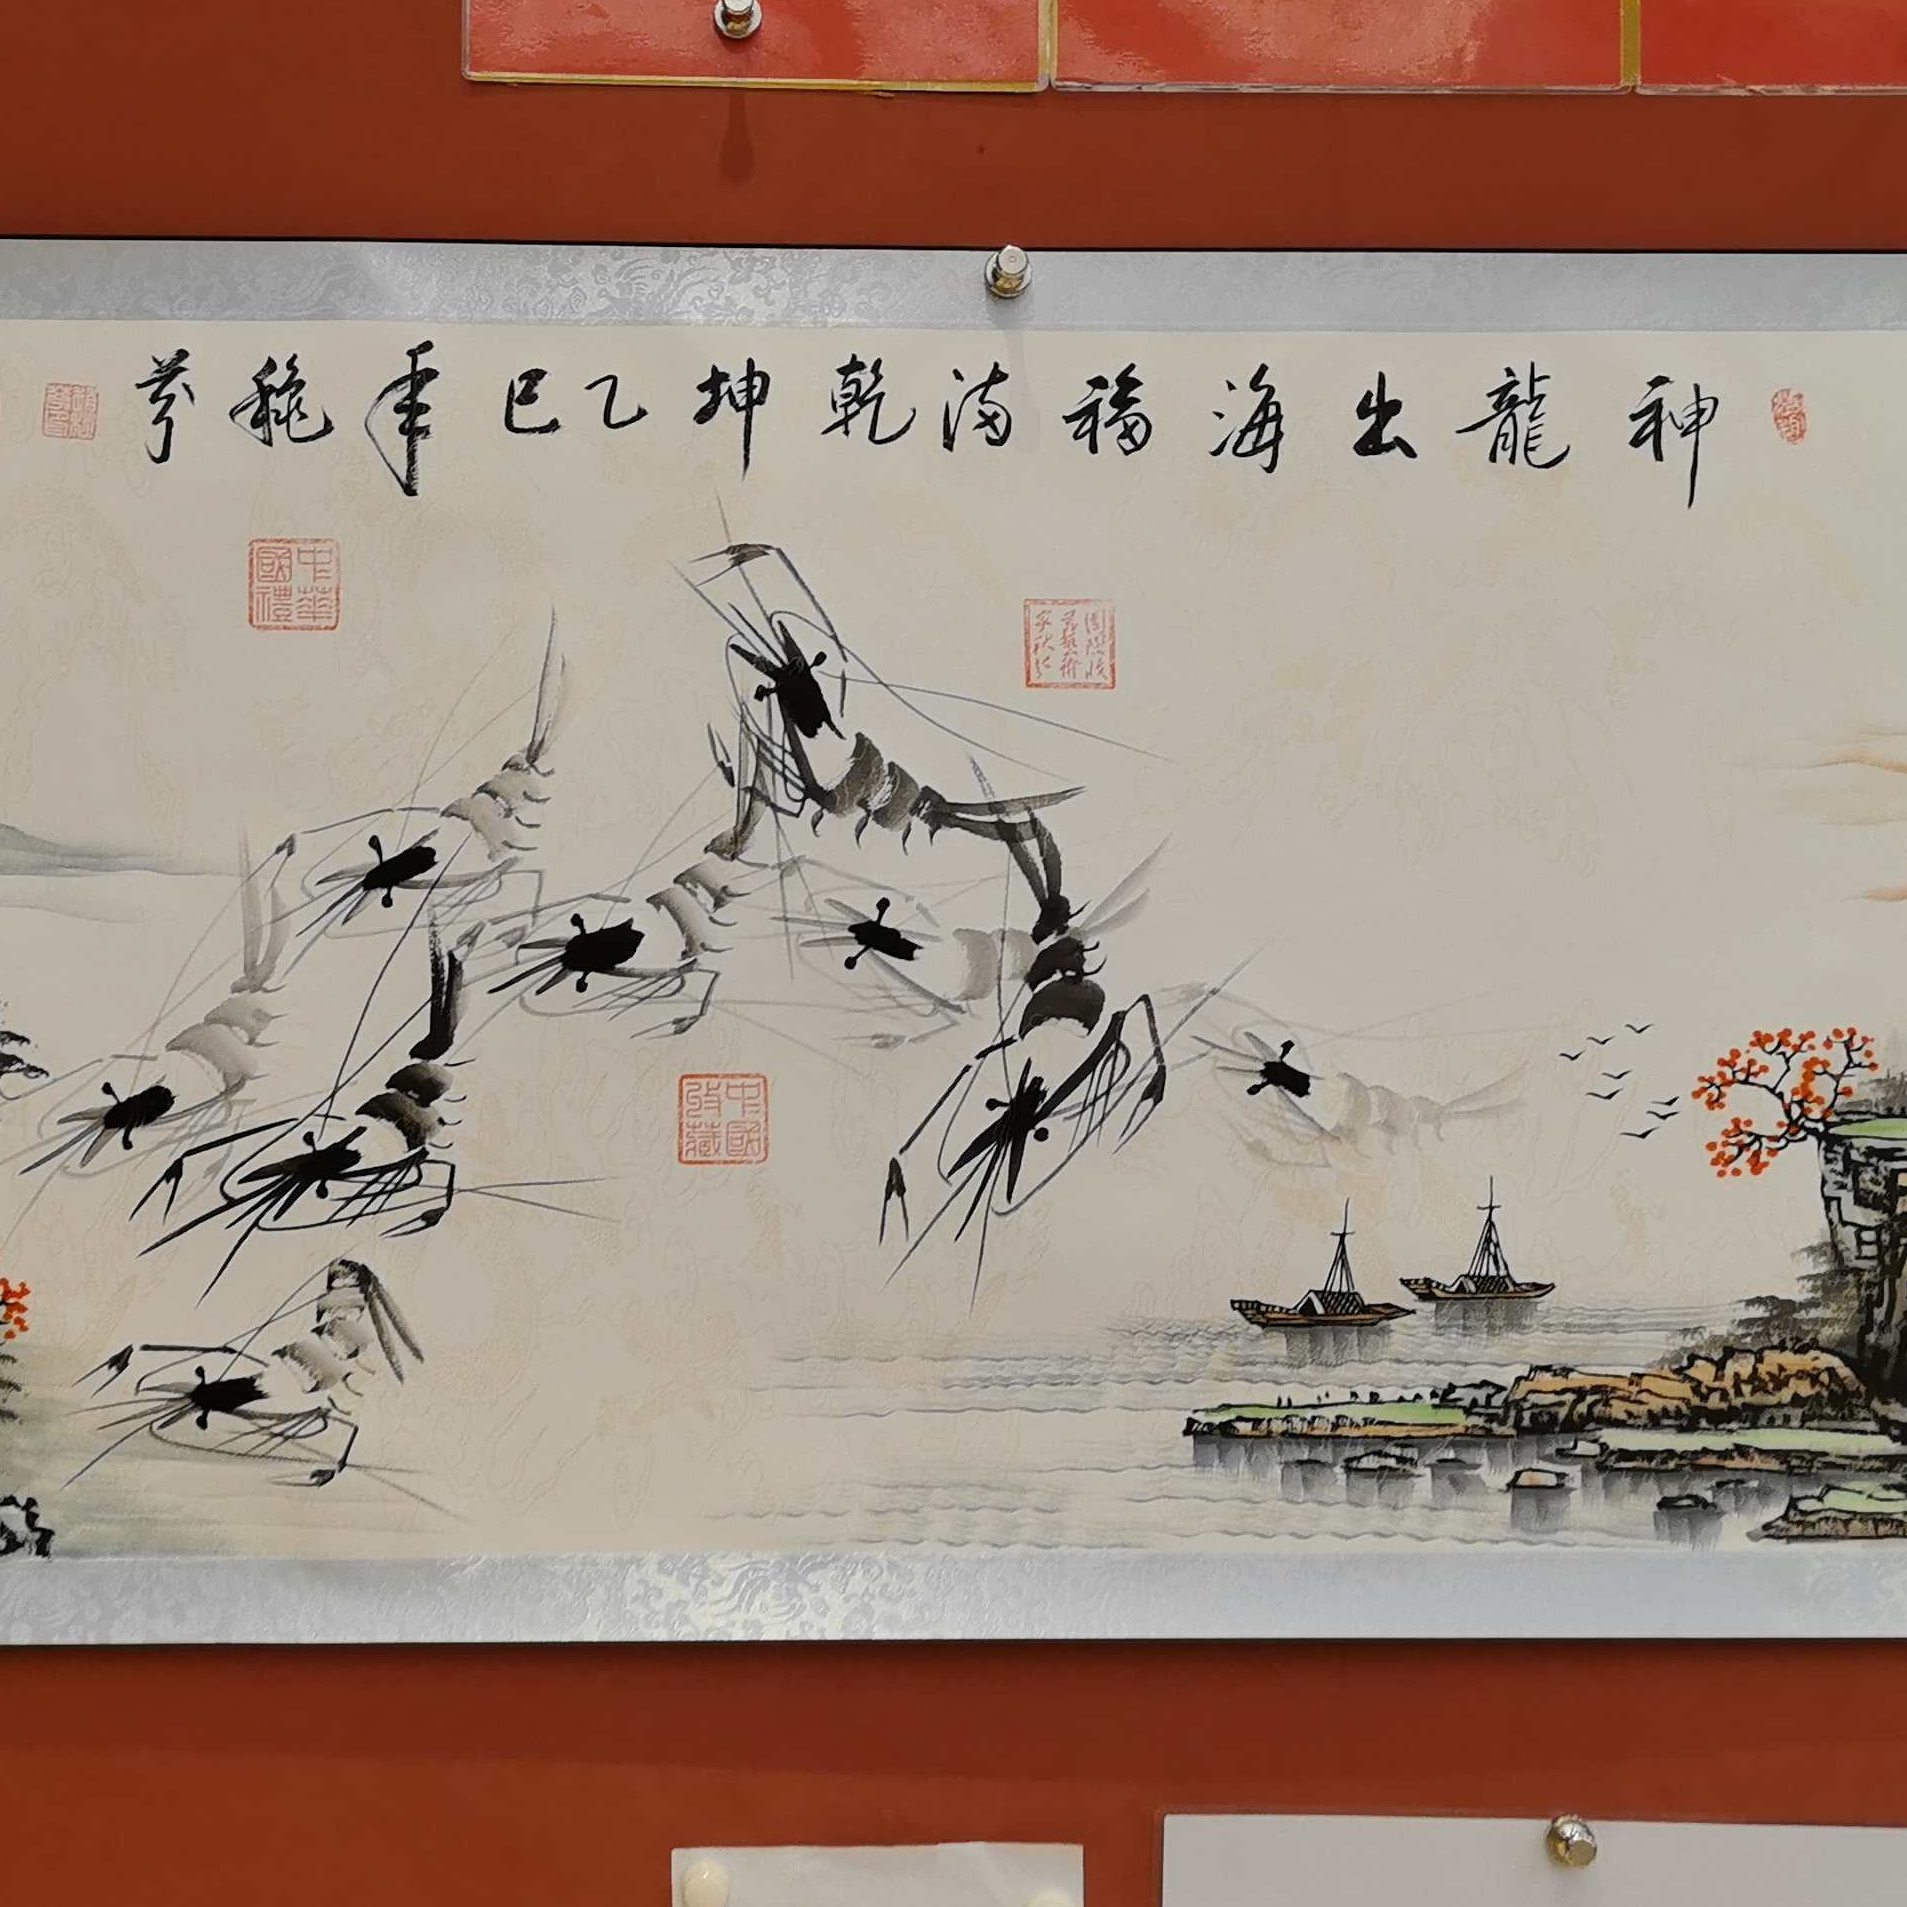 神龍出海福满乾坤乙巳年秾芬
中華國禮
中國收藏